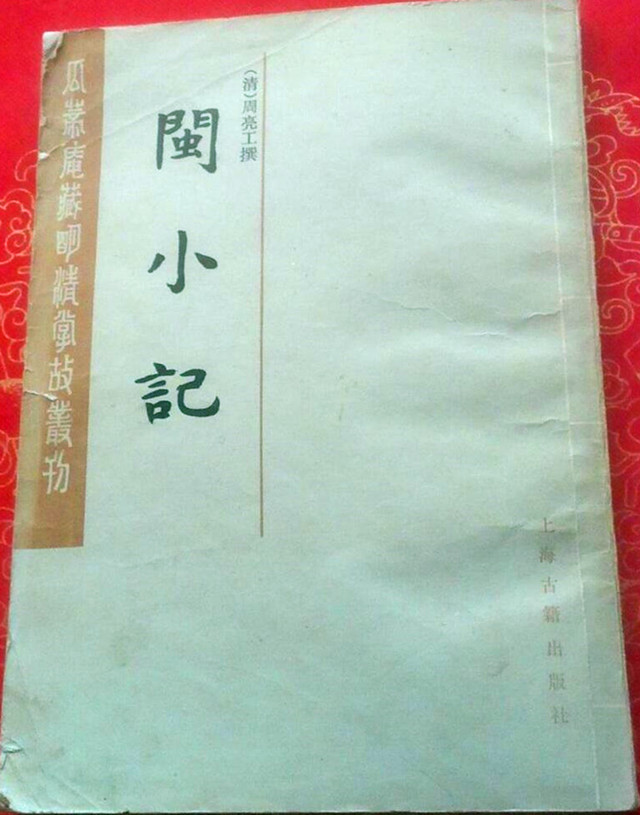 瓜蒂庵藏明清掌故叢刊
閩小記
(清)周亮工撰
上海古籍出版社